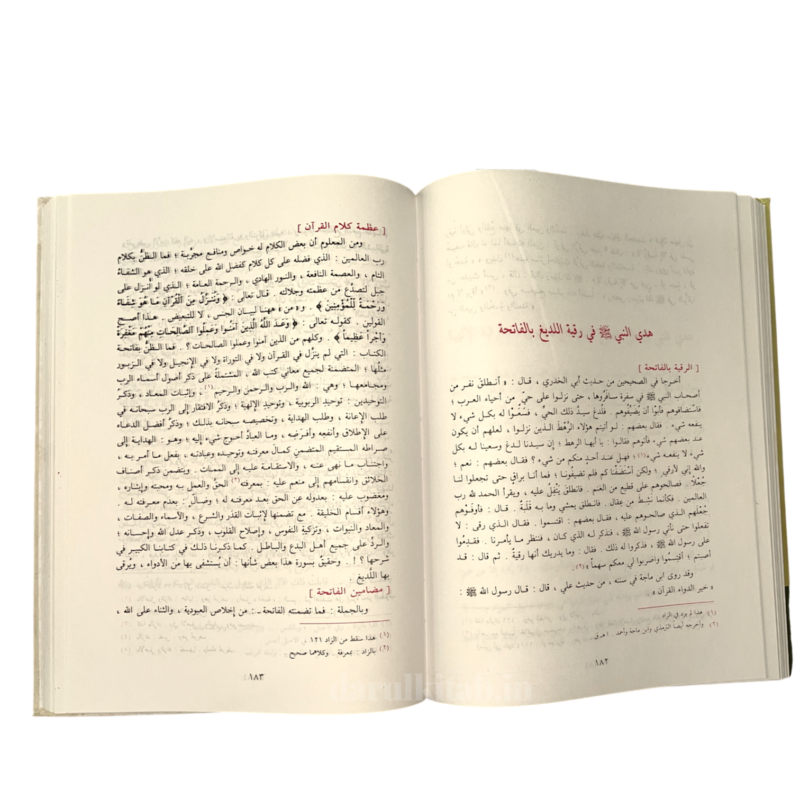 هدي النبي ﷺ في رقية اللديغ بالفاتحة
[ الرقية بالفاتحة ]
أخرجا في الصحيحين من حديث أبي الخدري ، قال : « أنطلق نفر من
أصحاب النبي ﷺ في سفرة سافروها ، حتى نزلوا على حيٍّ من أحياء العرب ؛
فاستضافوهم فأبَوْا أن يُضَيِّفُوهم . فلُدغ سيدُ ذلك الحيِّ ، فسَعَوْا له بكل شيء لا
ينفعه شيء . فقال بعضهم : لو أتيتم هؤلاء الرَّهْطَ الذين نزلوا ، لعلهم أن يكون
عند بعضهم شيء فأتوهم فقالوا : يا أيها الرهط ؛ إن سيدنا لدغ وسعينا له بكل
شيء لا ينفعه شيء(١) ؛ فهل عند أحدٍ منكم من شيء ؟ فقال بعضهم : نعم ؛
والله إني لأرقي ؛ ولكن أستضفناكم فلم تضيفونا ؛ فما أنا براقٍ حتى تجعلوا لنا
جُعْلًا . فصالحوهم على قطيع من الغنم . فانطلق يَتْفِلُ عليه ، ويقرأ الحمد لله رب
العالمين . فكأنما نشط من عِقال . فانطلق يمشي وما به قَلَبَةٌ . قال : فأوفَوْهم
جُعْلَهم الذي صالحوهم عليه . فقال بعضهم : اقتسموا . فقال الذي رقى : لا
تفعلوا حتى نأتي رسول الله ﷺ ، فنذكر له الذي كان ، فننظر ما يأمرنا . فقدِموا
على رسول الله ﷺ ، فذكروا له ذلك . فقال : وما يدريك أنها رقيةٌ . ثم قال : قد
أصبتم ؛ أقتسِموا واضربوا لي معكم سهماً »(٢) .
وقد روى ابن ماجة في سننه ، من حديث علي ، قال : قال رسول الله ﷺ :
« خير الدواء القرآن »
(١) هذا لم يرد في الزاد .
(٢) وأخرجه أيضاً الترمذي وابن ماجة وأحمد . ا هـ ق .
١٨٢
[ عظمة كلام القرآن ]
ومن المعلوم أن بعض الكلام له خواص ومنافع مجرَّبة ؛ فما الظنُّ بكلام
رب العالمين : الذي فضله على كل كلام كفضل الله على خلقه ؛ الذي هو الشفاءُ
التام ، والعصمة النافعة ، والنور الهادي ، والرحمة العامة ؛ الذي لو أُنزل على
جبل لتصدَّع من عظمته وجلالته . قال تعالى : ﴿ وَنُنَزِّلُ مِنَ الْقُرْآنِ مَا هُوَ شِفَاءٌ
وَرَحْمَةٌ لِلْمُؤْمِنِينَ ﴾ . و « من » ههنا لبيان الجنس ، لا للتبعيض . هذا أصح
القولين . كقوله تعالى : ﴿ وَعَدَ اللَّهُ الَّذِينَ آمَنُوا وَعَمِلُوا الصَّالِحَاتِ مِنْهُمْ مَغْفِرَةً
وَأَجْراً عَظِيماً ﴾ . وكلهم من الذين آمنوا وعملوا الصالحات ؟ . فما الظنُّ بفاتحة
الكتاب : التي لم ينزَّل في القرآن ولا في التوراة ولا في الإنجيل ولا في الزبور
مثلُها ؛ المتضمنة لجميع معاني كتب الله ، المشتملة على ذكر أصول أسماء الرب
ومجامعها ؛ وهي : الله والرب والرحمن والرحيم (١) ، وإثبات المعاد ، وذكرُ
التوحيدين : توحيد الربوبية ، وتوحيد الإلهية ؛ وذكرُ الافتقار إلى الرب سبحانه في
طلب الإعانة ، وطلب الهداية ، وتخصيصه سبحانه بذلك ؛ وذكرُ أفضل الدعاء
على الإطلاق وأنفعِه وأفرضِه ، وما العبادُ أحوج شيء إليه ؛ وهو : الهداية إلى
صراطه المستقيم المتضمن كمال معرفته وتوحيده وعبادته ، بفعل ما أمر به ،
واجتناب ما نهى عنه ، والاستقامة عليه إلى الممات . ويتضمن ذكرَ أصناف
الخلائق وانقسامهم إلى منعم عليه : بمعرفته(٢) الحقّ والعملِ به ومحبته وإيثاره ،
ومغضوب عليه : بعدوله عن الحق بعد معرفته له ؛ وضالٍّ : بعدم معرفته له .
وهؤلاء أقسام الخليقة . مع تضمنها لإثبات القدَر والشرع ، والأسماء والصفات ،
والمعاد والنبوات ، وتزكيةِ النفوس ، وإصلاح القلوب ، وذكر عدل الله وإحسانه ؛
والردِّ على جميع أهل البدع والباطل . كما ذكرنا ذلك في كتابنا الكبير في
شرحها ؟ . [ وحقيقٌ بسورة هذا بعض شأنها : أن يُستشفى بها من الأدواء ، ويُرقى
بها اللَّديغ .
[ مضامين الفاتحة ]
وبالجملة : فما تضمنته الفاتحة ـ : من إخلاص العبودية ، والثناء على الله ،
(١) هذا سقط من الزاد ١٢١ .
(٢) بالزاد : بمعرفة . وكلاهما صحيح .
١٨٣